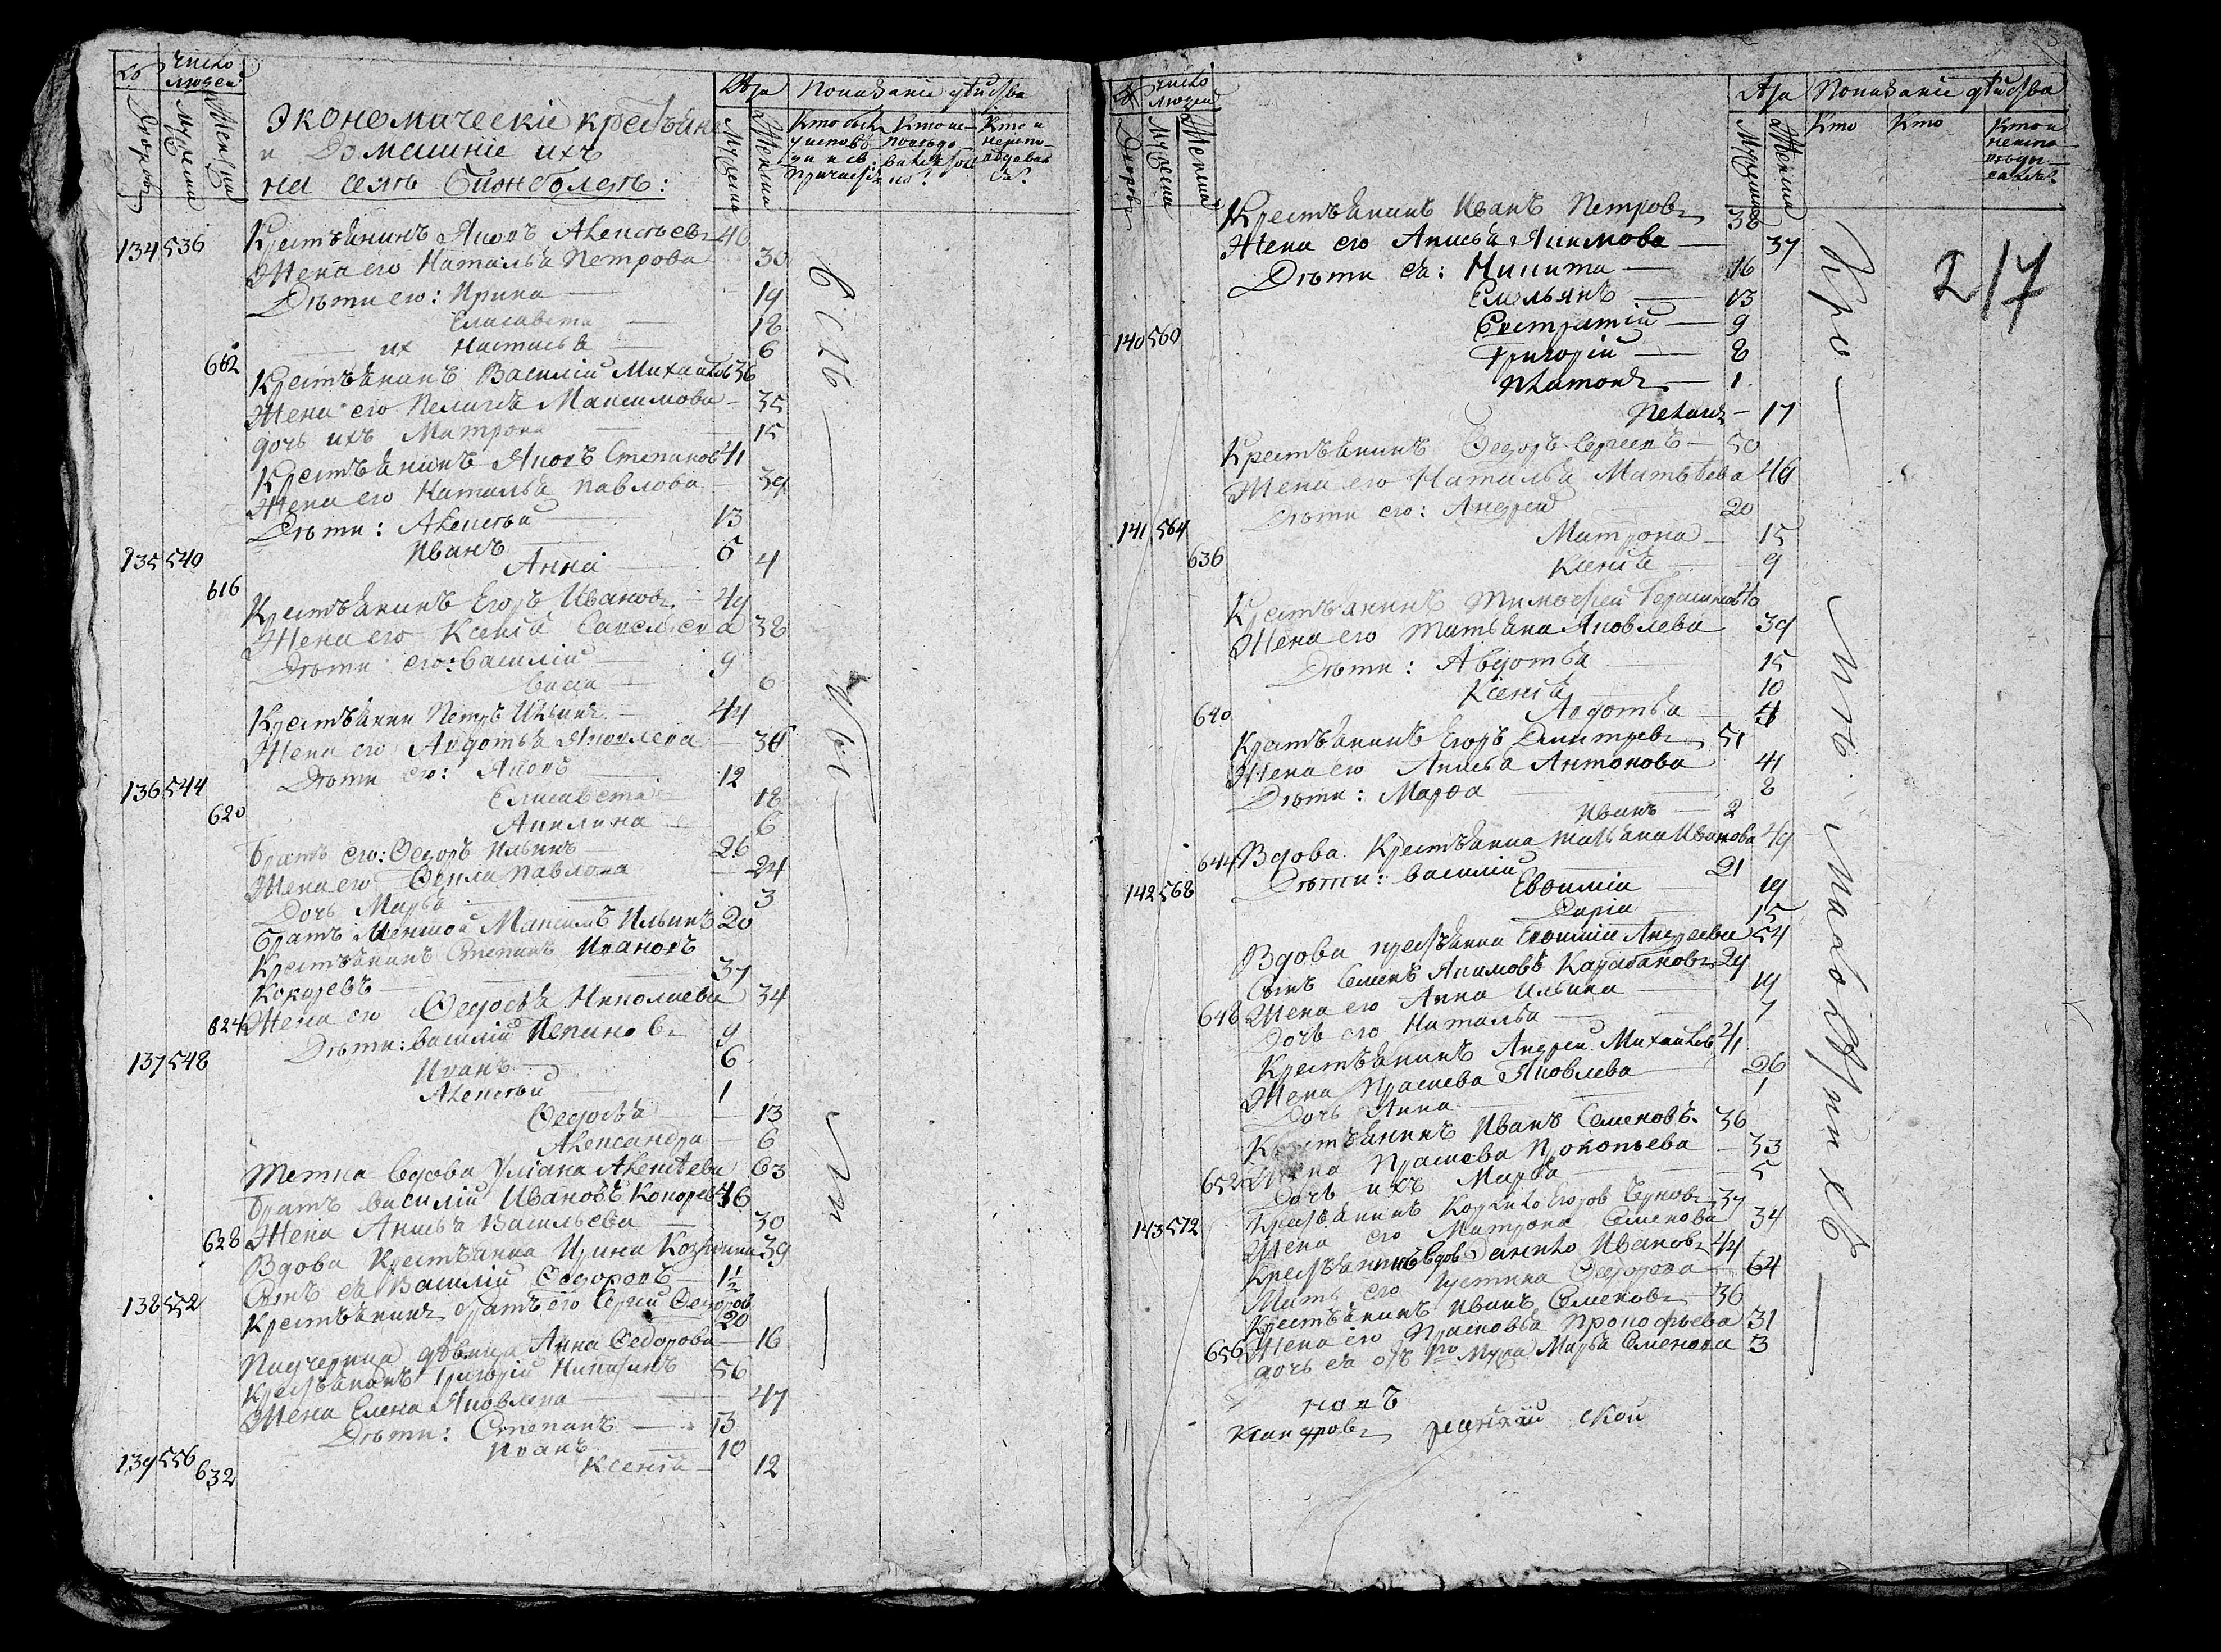 число
людей
Дворовъ
Мужеска
Женска
Экономическіе крестьяне
и Домашніе ихъ
Лѣта
Мужеска
Женска
Показаніе дѣйства
Кто былъ у исповѣди и св: причастія
Кто исповѣдовался
Кто и неисповѣдовался
134 536 Крестьянинъ Яковъ Алексѣевъ 40
Жена его Наталья Петрова 30
Дѣти его: Ирина 19
Елисавета 18
их Настасья 6
Крестьянинъ Василій Михайлов 36
Жена его Пелагея Максимова 35
дочь ихъ Матрона 15
Крестьянинъ Яковъ Степанов 41
Жена его Наталья Павлова 39
Дѣти: Алексѣй 13
Иванъ 6
135 540
Анна 4
616
Крестьянинъ Егоръ Ивановъ 49
Жена его Ксенія Савельева 38
Дѣти его: Василій 9
Васса 6
Крестьянин Петръ Ильинъ 44
Жена его Авдотья Яковлева 38
Дѣти его: Яковъ 12
136 544
Елисавета 18
620
Акилина 6
братъ его: Ѳедоръ Ильинъ 26
Жена его Ѳекла Павлова 24
Дочь Марья 3
братъ Меншой Максимъ Ильинъ 20
Крестьянинъ Степанъ Ивановъ
Кокоревъ 37
624 Жена его Ѳедосья Николаева 34
Дѣти: Василій 9
137 548
Иванъ 6
Алексѣй 1
Ѳедосья 13
Александра 6
Тетка Вдова Уліана Алексѣева 63
братъ Василій Ивановъ Кокоревъ 46
628 Жена Анисья Васильева 30
Вдова Крестьянка Ирина Козмина 39
Сынъ ея Василій Ѳедоровъ 1 1/2
138 552
Крестьянинъ братъ его Сергій Ѳедоров 20
Падчерица дѣвица Анна Ѳедорова 16
Крестьянинъ Григорій Никитинъ 56
Жена Елена Яковлева 47
Дѣти: Степанъ 13
Иванъ 10
139 556
632
Ксенія 12
всѣ
число
людей
Дворовъ
Мужеска
Женска
Лѣта
Мужеска
Женска
Показаніе дѣйства
Кто
Кто
Кто и
217
Крестьянинъ Иванъ Петровъ 38
Жена его Анисья Акимова 37
Дѣти ея: Никита 16
Емельянъ 13
Евстратій 9
140 560
Григорій 8
Платонъ 1
Пелагея 17
Крестьянинъ Ѳедоръ Сергеевъ 50
Жена его Наталья Матвѣева 46
Дѣти его: Андрей 20
141 564
Матрона 15
636
Ксенія 9
Крестьянинъ Тимофей Герасимов 46
Жена его Татьяна Яковлева 39
Дѣти: Авдотья 15
Ксенія 10
640
Авдотья 4
Крестьянинъ Егоръ Дмитревъ 51
Жена его Анисья Антонова 41
Дѣти: Марѳа 8
Иванъ 2
644 Вдова Крестьянка Татьяна Иванова 49
Дѣти: Василій 21
142 568
Евѳимія 19
Дарія 15
Вдова крестьянка Евѳимія Андреева 54
Сынъ Семенъ Акимовъ Карабановъ 29
648 Жена его Анна Ильина 19
Дочь его Наталья 7
Крестьянинъ Андрей Михайлов 41
Жена Прасковья Яковлева 26
Дочь Анна 1
Крестьянинъ Иванъ Семеновъ 36
652 Жена Прасковья Прокопьева 33
Дочь ихъ Марья 5
143 572
Крестьянинъ Корнило Егоров Черновъ 37
Жена его Матрона Семенова 34
Крестьянинъ Вдовъ Данило Ивановъ 44
Мать его Устинья Ѳедорова 64
Крестьянинъ Иванъ Семеновъ 36
656 Жена его Прасковья Прокофьева 31
дочь ея отъ 1го Мужа Марья Семенова 3
Кромѣ Малолѣтнихъ